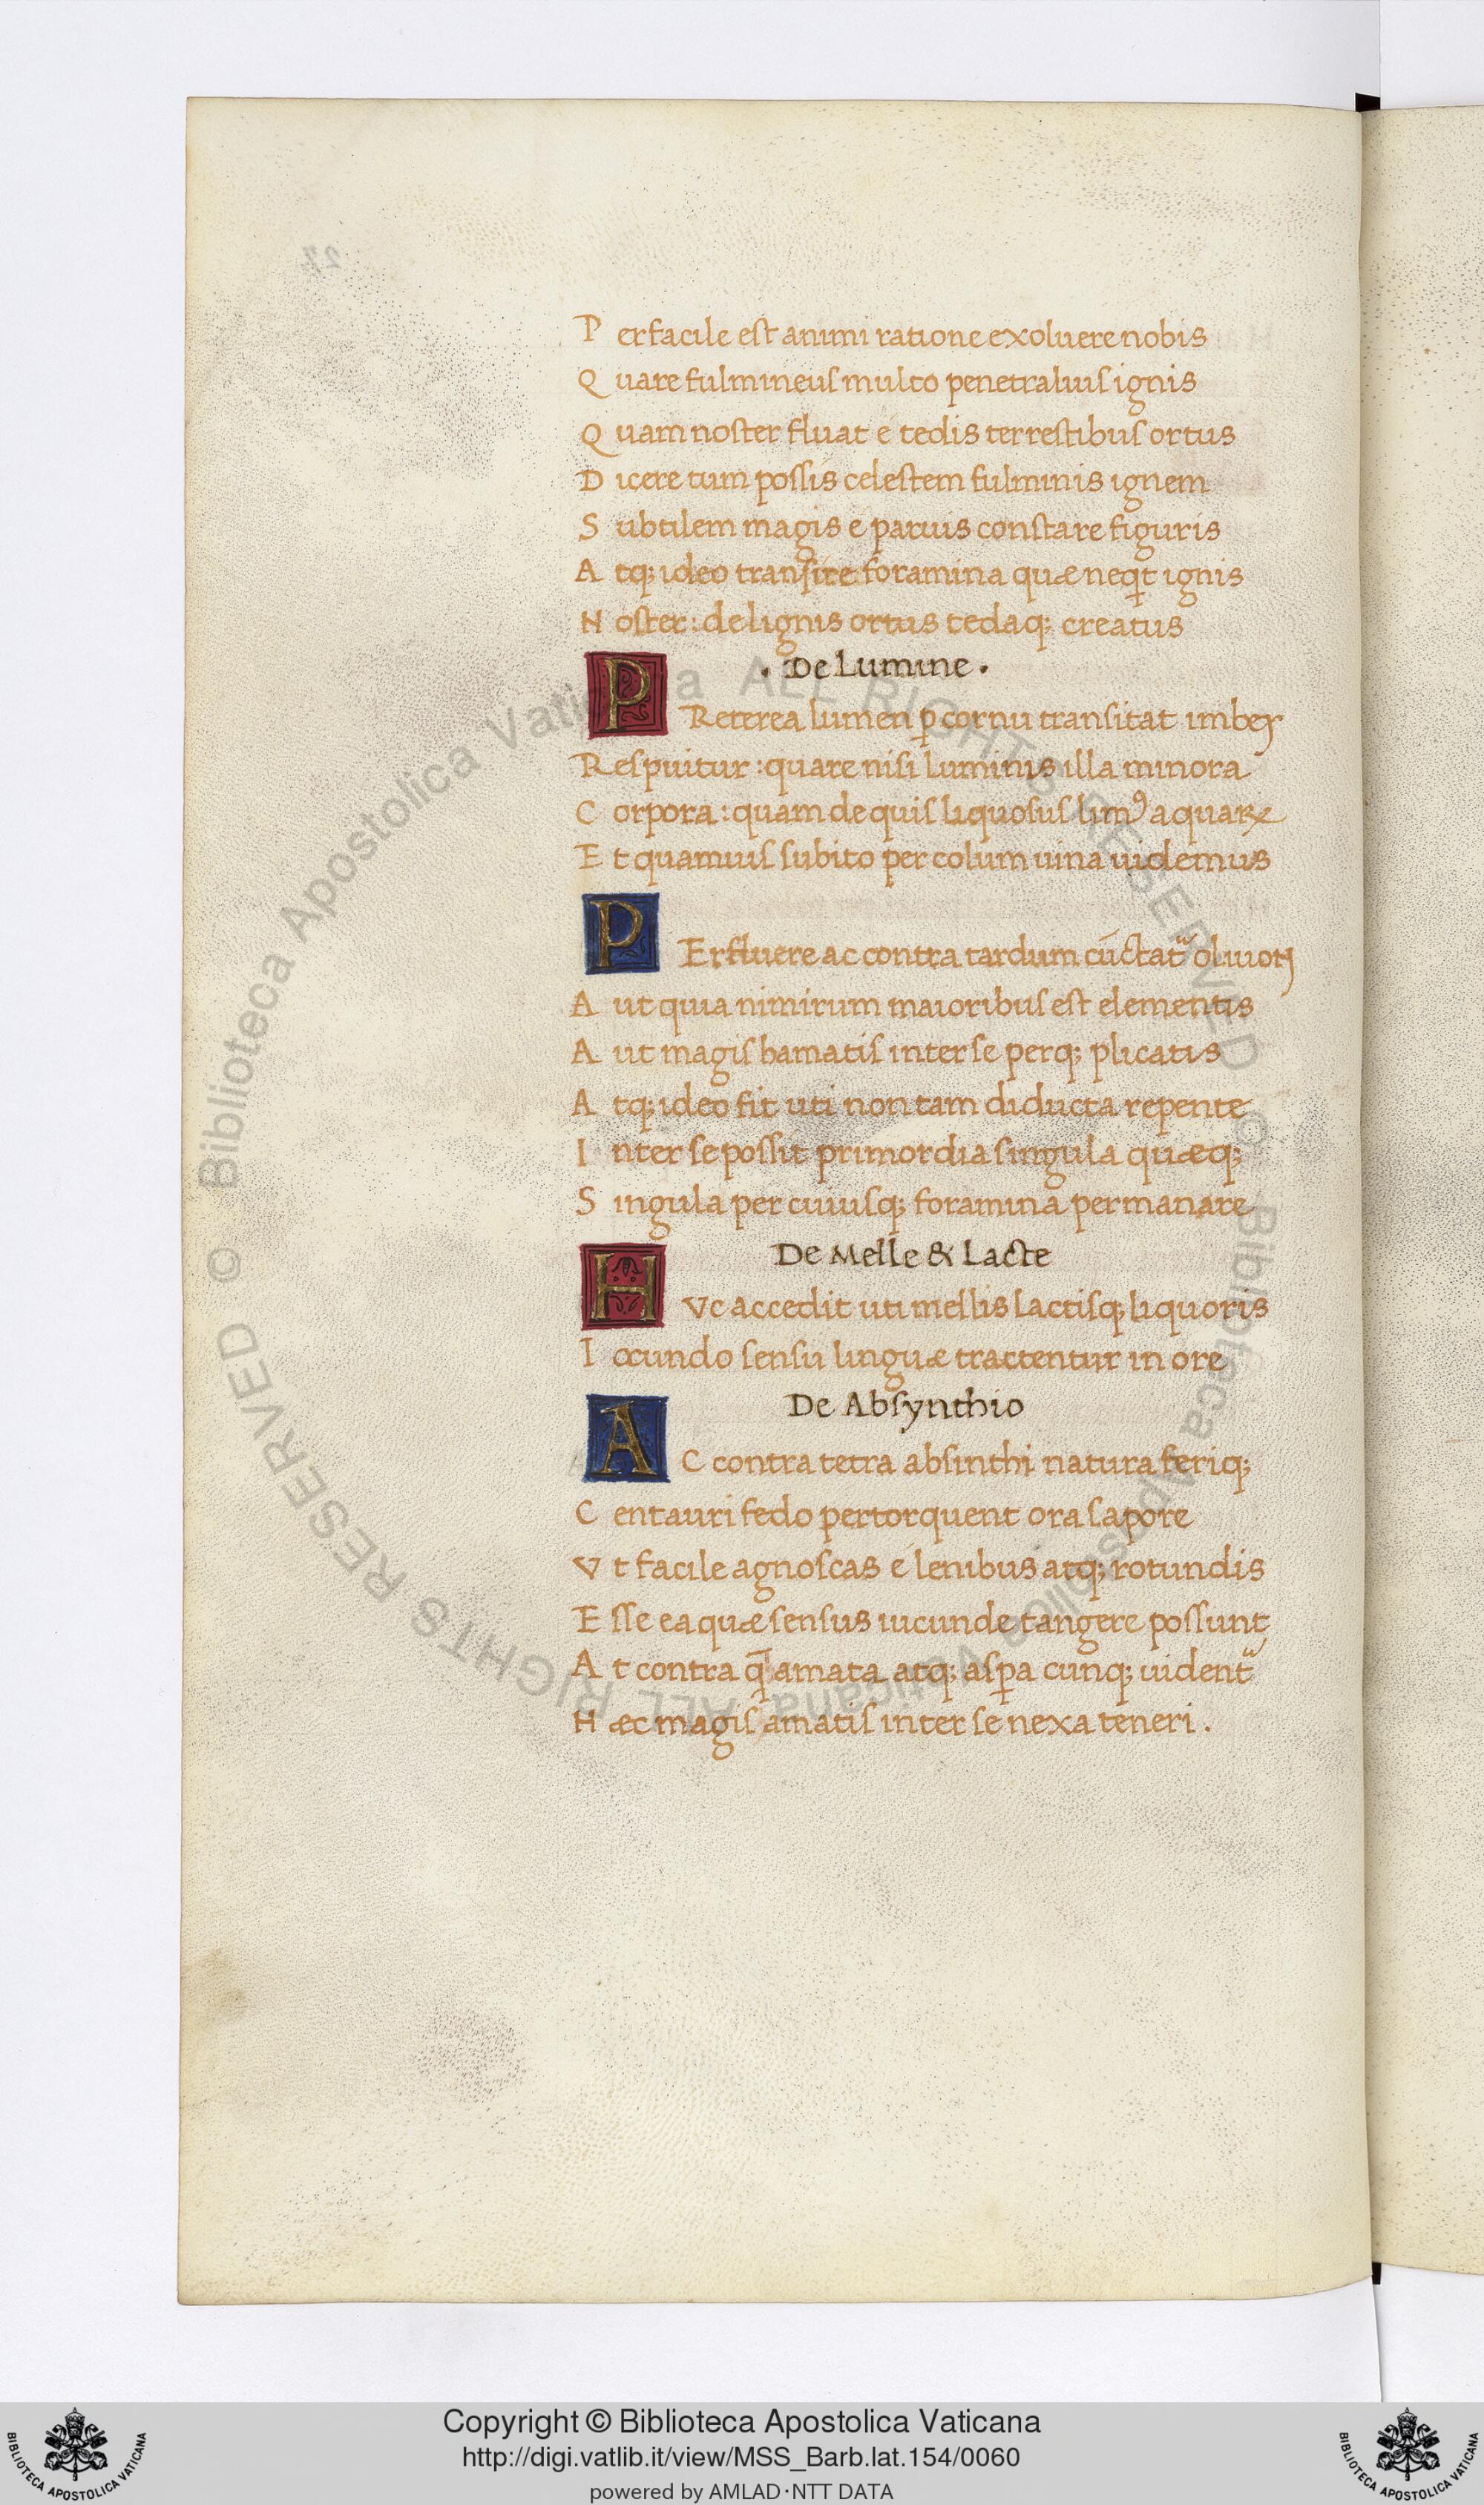 27
P erfacile est animi ratione exoluere nobis
Q uare fulmineus multo penetralius ignis
Q uam noster fluat e tedis terrestibus ortus
D icere tum possis celestem fulminis ignem
S ubtilem magis e paruis constare figuris
A tq; ideo transire foramina quæ neqt ignis
N oster: de lignis ortus tedaq; creatus
. De Lumine .
P Reterea lumen ꝑ cornu transitat imber
Respuitur: quare nisi luminis illa minora
C orpora: quam de quis liquosus limꝰ aquaꝝ
E t quamuis subito per colum uina uidemus
P Erfluere ac contra tardum cūctat᷑ oliuom
A ut quia nimirum maioribus est elementis
A ut magis hamatis inter se perq; plicatis
A tq; ideo fit uti non tam diducta repente
I nter se possit primordia singula quæq;
S ingula per cuiusq; foramina permanare
De Melle & Lacte
H Vc accedit uti mellis lactisq; liquoris
I ocundo sensu linguæ tractentur in ore
De Absynthio
A C contra tetra absinthi natura feriq;
C entauri fedo pertorquent ora sapore
V t facile agnoscas e lenibus atq; rotundis
E sse ea quæ sensus iucunde tangere possunt
A t contra q̄ amata atq; asꝑa cunq; uident᷑
H æc magis amatis inter se nexa teneri .
© Biblioteca Apostolica Vaticana ALL RIGHTS RESERVED
© Biblioteca Apostolica Vaticana ALL RIGHTS RESERVED
Copyright © Biblioteca Apostolica Vaticana
http://digi.vatlib.it/view/MSS_Barb.lat.154/0060
powered by AMLAD·NTT DATA
BIBLIOTECA APOSTOLICA VATICANA
BIBLIOTECA APOSTOLICA VATICANA